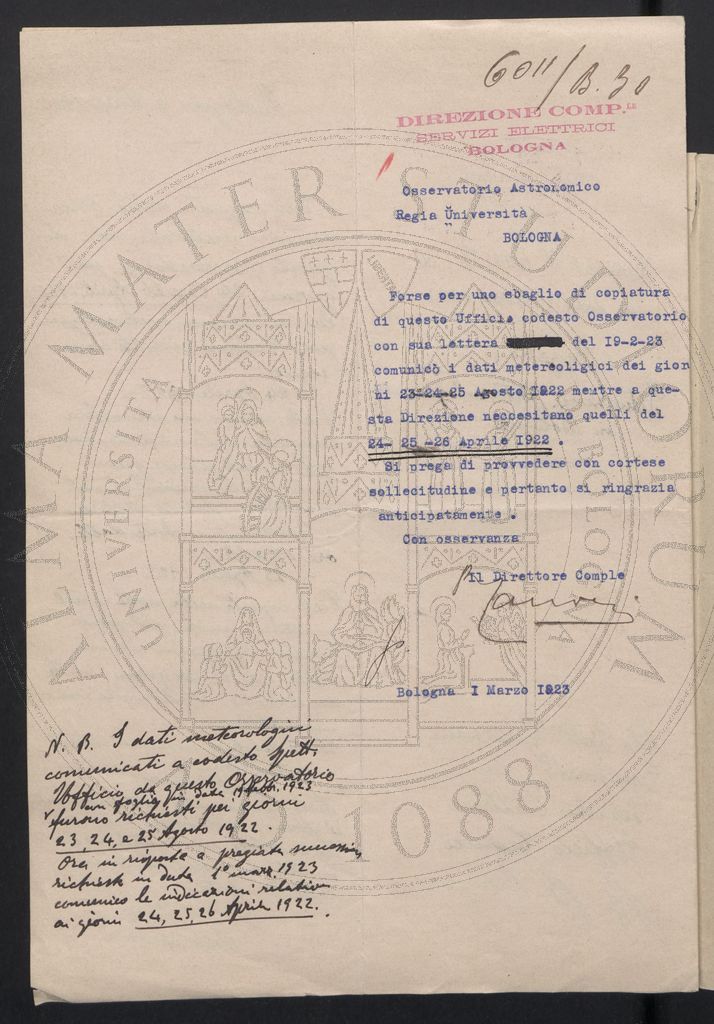 6011/B.30
DIREZIONE COMP.LE
SERVIZI ELETTRICI
BOLOGNA
Osservatorio Astronomico
Regia Università
"
BOLOGNA
Forse per uno sbaglio di copiatura
di questo Ufficio codesto Osservatorio
con sua lettera del I9-2-23
comunicò i dati metereoligici dei gior
ni 23-24-25 Agosto I922 mentre a que-
sta Direzione neccesitano quelli del
24- 25 -26 Aprile I922 .
Si prega di provvedere con cortese
sollecitudine e pertanto si ringrazia
anticipatamente .
Con osservanza
Il Direttore Comple
Bologna I Marzo I923
N. B. I dati meteorologici
comunicati a codesto Spett.
Ufficio da questo Osservatorio
con foglio in data 19 febb. 1923
furono richiesti pei giorni
23 24, e 25 Agosto 1922.
Ora in risposta a pregiata
richiesta in data 1° marz. 1923
comunico le indicazioni relative
ai giorni 24, 25, 26 Aprile 1922.
ALMA MATER STUDIORUM
UNIVERSITA
BOLOGNA
LIBERTAS
1088